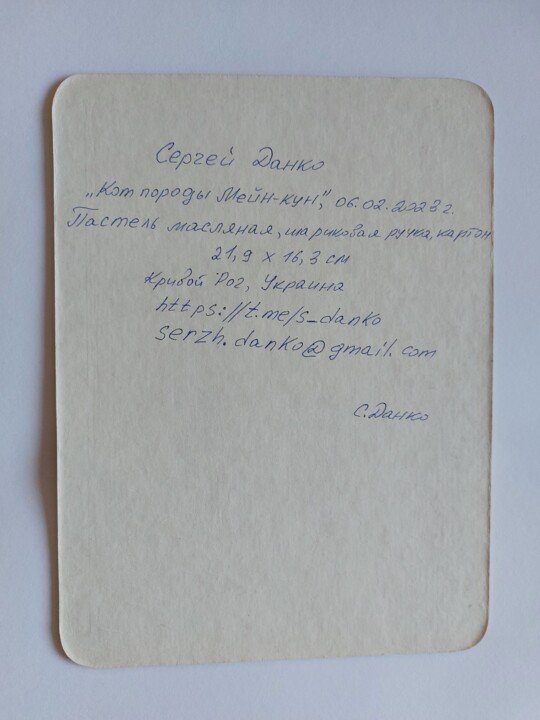 Сергей Данко
„Кот породы Мейн-кун", 06.02.2023 г.
Пастель масляная, шариковая ручка, картон
21,9 х 16,3 см
Кривой Рог, Украина
https://t.me/s_danko
serzh.danko@gmail.com
С.Данко